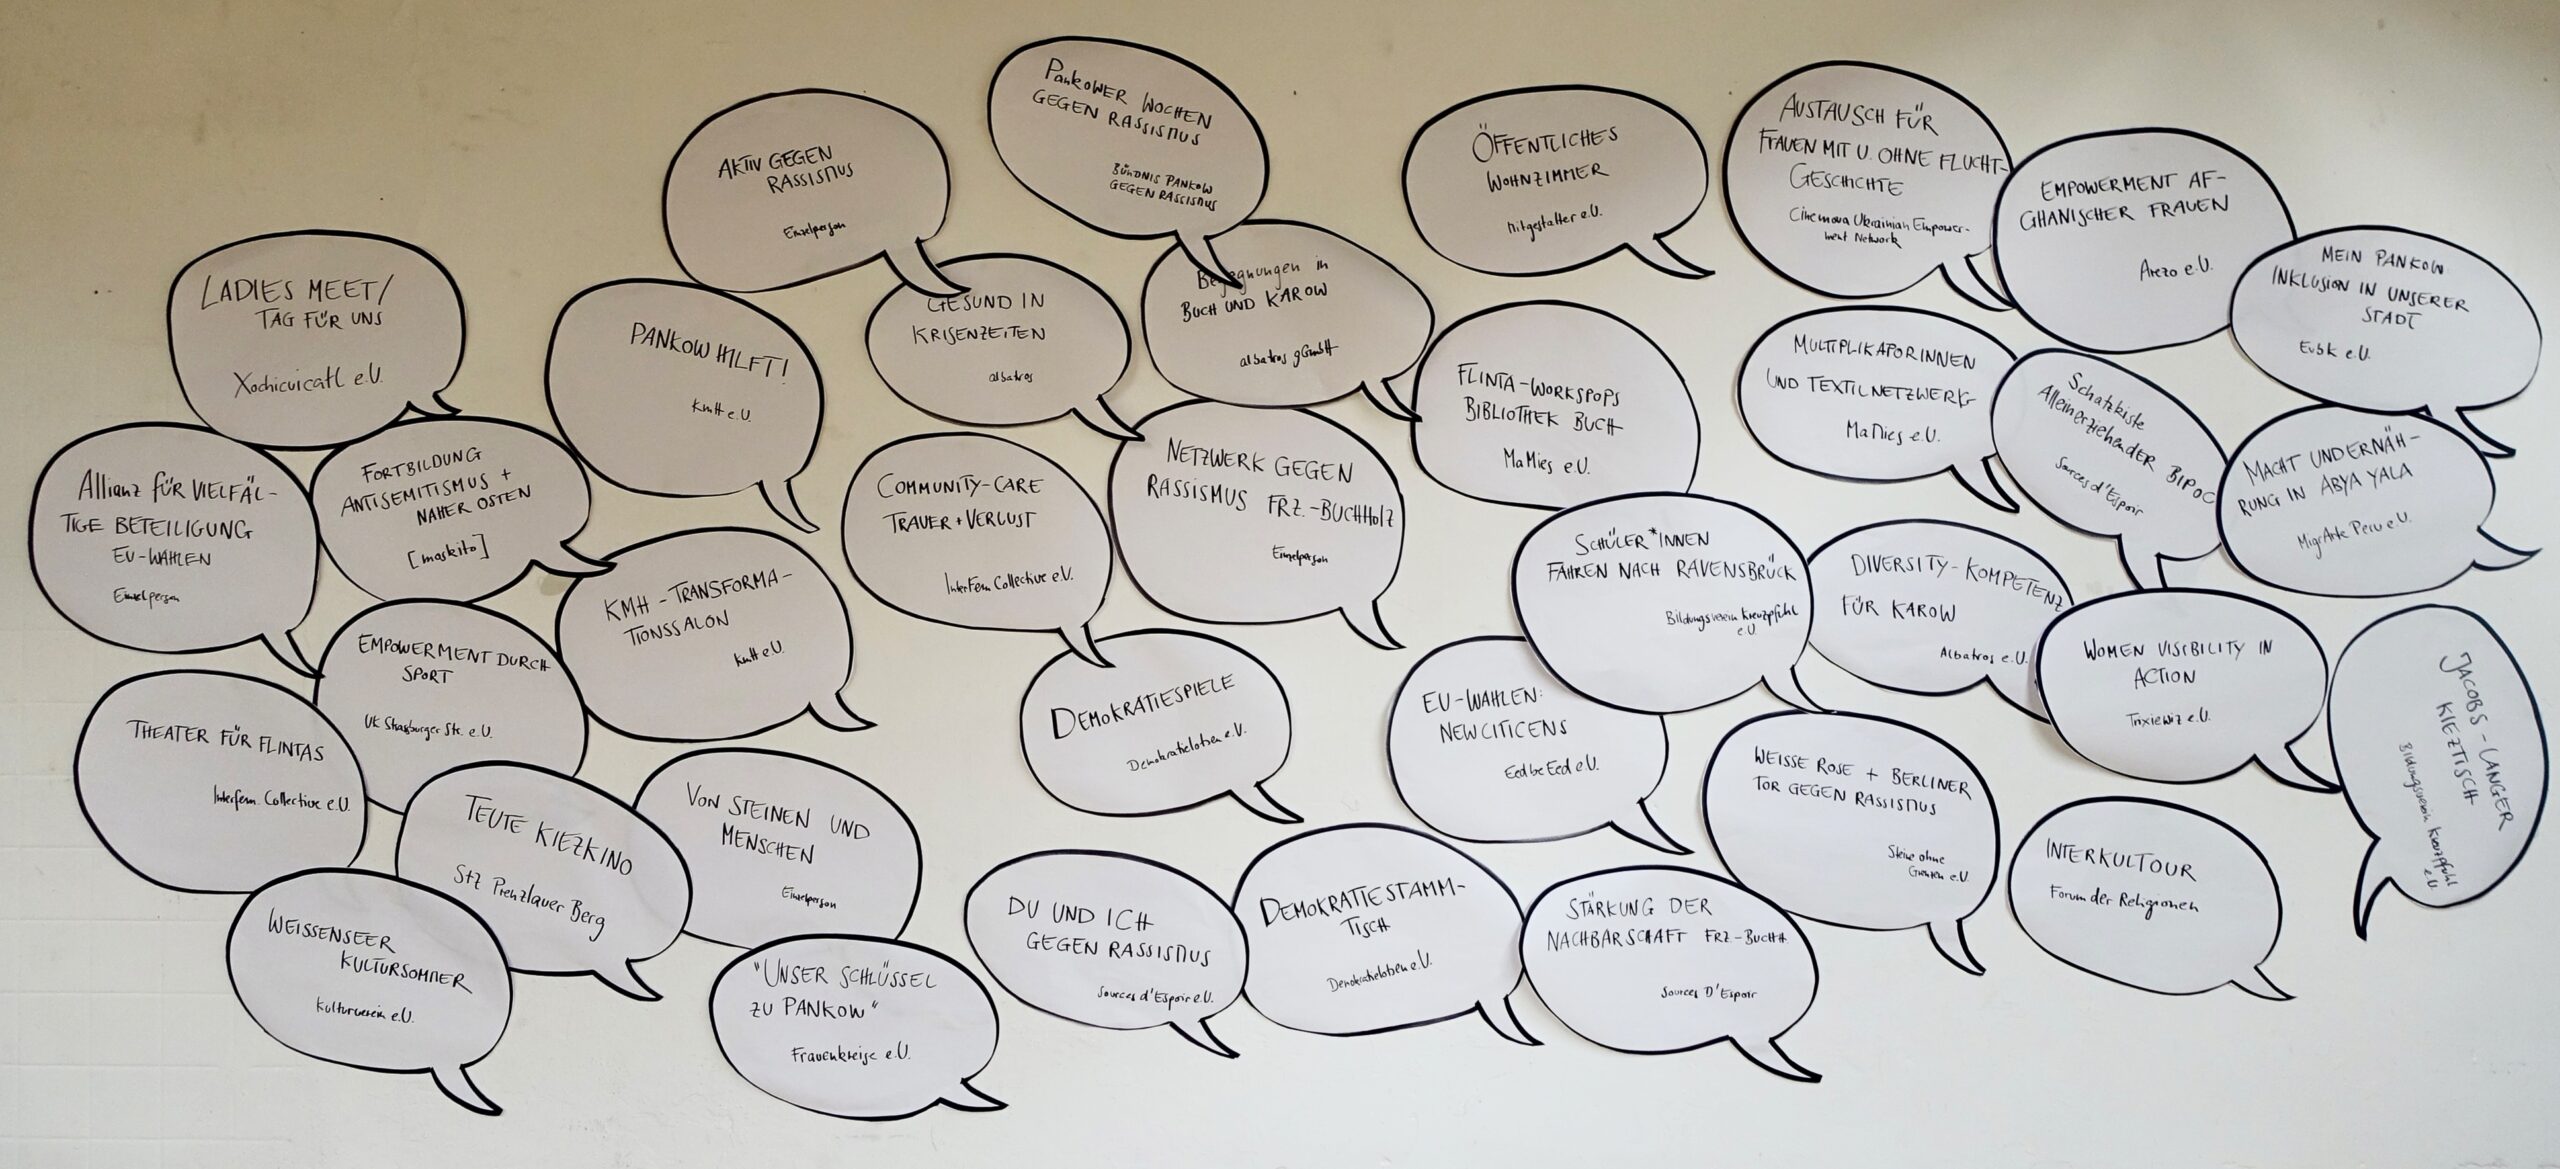 LADIES MEET/
TAG FÜR UNS
Xochicuicatl e.V.
Allianz FÜR VIELFÄL-
TIGE BETEILIGUNG
EU-WAHLEN
Einzelperson
FORTBILDUNG
ANTISEMITISMUS +
NAHER OSTEN
[moskito]
PANKOW HILFT!
KMH e.V.
AKTIV GEGEN
RASSISMUS
Einzelperson
PANKOWER WOCHEN
GEGEN RASSISMUS
BÜNDNIS PANKOW
GEGEN RASSISMUS
GESUND IN
KRISENZEITEN
albatros
Begegnungen in
BUCH UND KAROW
albatros gGmbH
ÖFFENTLICHES
WOHNZIMMER
Mitgestalter e.V.
AUSTAUSCH FÜR
FRAUEN MIT U. OHNE FLUCHT-
GESCHICHTE
Cinemova Ukrainian Empower-
ment Network
EMPOWERMENT AF-
GHANISCHER FRAUEN
Arezo e.V.
MEIN PANKOW
INKLUSION IN UNSERER
STADT
EvBk e.V.
FLINTA-WORKSPOPS
BIBLIOTHEK BUCH
MaMies e.V.
MULTIPLIKAPORINNEN
UND TEXTILNETZWERK
MaMies e.V.
Schatzkiste
AlleinerziehendER BIPOC
Sources d'Espoir
MACHT UNDERNÄH-
RUNG IN ABYA YALA
MigrArte Peru e.V.
KMH-TRANSFORMA-
TIONSSALON
KMH e.V.
COMMUNITY-CARE
TRAUER + VERLUST
InterFem Collective e.V.
NETZWERK GEGEN
RASSISMUS FRZ.-BUCHHOLZ
Einzelperson
SCHÜLER*INNEN
FAHREN NACH RAVENSBRÜCK
Bildungsverein Kreuzpfuhl
e.V.
DIVERSITY-KOMPETENZ
FÜR KAROW
Albatros e.V.
WOMEN VISIBILITY IN
ACTION
Trixiewiz e.V.
JACOBS-LANGER
KIEZTISCH
Bildungsverein Kreuzpfuhl
e.V.
EMPOWERMENT DURCH
SPORT
VK Straßburger Str. e.V.
THEATER FÜR FLINTAS
Interfem. Collective e.V.
TEUTE KIEZKINO
StZ Prenzlauer Berg
VON STEINEN UND
MENSCHEN
Einzelperson
DEMOKRATIESPIELE
Demokratielotsen e.V.
EU-WAHLEN:
NEW CITICENS
EedbeEed e.V.
WEISSE ROSE + BERLINER
TOR GEGEN RASSISMUS
Steine ohne
Grenzen e.V.
INTERKULTOUR
Forum der Religionen
WEISSENSEER
KULTURSOMMER
Kulturverein e.V.
"UNSER SCHLÜSSEL
ZU PANKOW"
Frauenkreise e.V.
DU UND ICH
GEGEN RASSISMUS
Sources d'Espoir e.V.
DEMOKRATIESTAMM-
TISCH
Demokratielotsen e.V.
STÄRKUNG DER
NACHBARSCHAFT FRZ.-BUCHH.
Sources D'Espoir